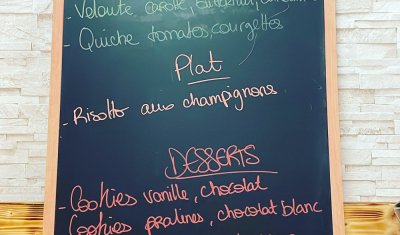 - Velouté carotte,
- Quiche tomates, courgettes
Plat
- Risotto aux champignons
DESSERTS
- Cookies vanille, chocolat
Cookies pralines, chocolat blanc